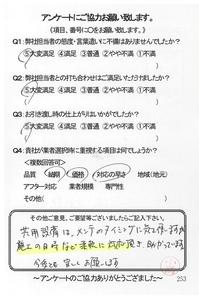 アンケートにご協力お願い致します。
(項目、番号に〇をお願いします。)
Q1:弊社担当者の態度・言葉遣いに不備はありませんでしたか?
⑤大変満足 ④満足 ③普通 ②やや不満 ①不満
Q2:弊社担当者との打ち合わせはご満足いただけましたか?
⑤大変満足 ④満足 ③普通 ②やや不満 ①不満
Q3:お引き渡し時の仕上がりはいかがでしたか?
⑤大変満足 ④満足 ③普通 ②やや不満 ①不満
Q4:貴社が業者選択時に重視する項目は何でしょうか?
<複数回答可>
品質 納期 価格 対応の早さ 地域(地元)
アフター対応 業者規模 専門性
その他( )
その他ご意見、ご要望等ございましたらご記入下さい。
共用設備は、メンテのタイミングに
施工の日時など柔軟に 助かっています
今後とも 宜しくお願いします
~アンケートのご協力ありがとうござました~
253